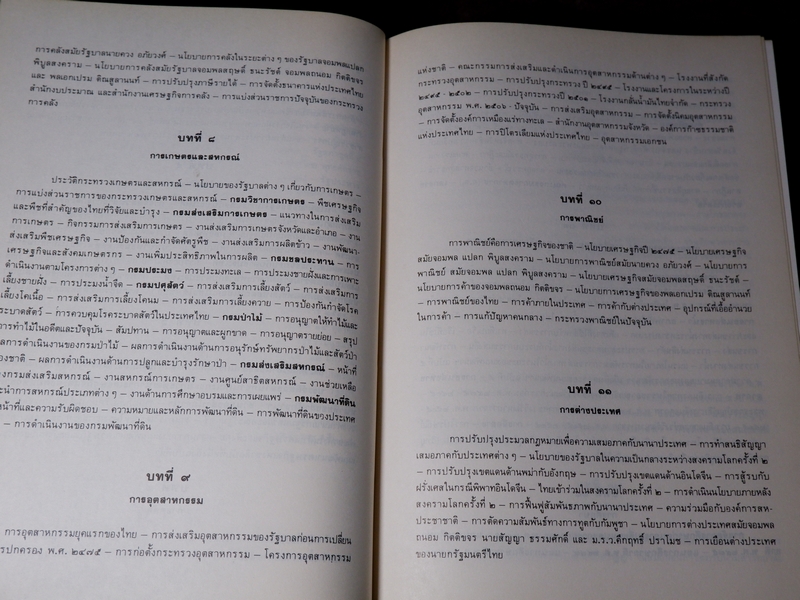 การคลังสมัยรัฐบาลนายควง อภัยวงศ์ – นโยบายการคลังในระยะต่าง ๆ ของรัฐบาลจอมพลแปลก
พิบูลสงคราม – นโยบายการคลังสมัยรัฐบาลจอมพลสฤษดิ์ ธนะรัชต์ จอมพลถนอม กิตติขจร
และ พลเอกเปรม ติณสูลานนท์ – การปรับปรุงภาษีรายได้ – การจัดตั้งธนาคารแห่งประเทศไทย
สำนักงบประมาณ และสำนักงานเศรษฐกิจการคลัง – การแบ่งส่วนราชการปัจจุบันของกระทรวง
การคลัง
บทที่ ๘
การเกษตรและสหกรณ์
ประวัติกระทรวงเกษตรและสหกรณ์ – นโยบายของรัฐบาลต่าง ๆ เกี่ยวกับการเกษตร –
การแบ่งส่วนราชการของกระทรวงเกษตรและสหกรณ์ – กรมวิชาการเกษตร – พืชเศรษฐกิจ
และพืชที่สำคัญของไทยที่วิจัยและบำรุง – กรมส่งเสริมการเกษตร – แนวทางในการส่งเสริม
การเกษตร – กิจกรรมการส่งเสริมการเกษตร – งานส่งเสริมการเกษตรจังหวัดและอำเภอ – งาน
ส่งเสริมพืชเศรษฐกิจ – งานป้องกันและกำจัดศัตรูพืช – งานส่งเสริมการผลิตข้าว – งานพัฒนา
เศรษฐกิจและสังคมเกษตรกร – งานเพิ่มประสิทธิภาพในการผลิต – กรมชลประทาน – การ
ดำเนินงานตามโครงการต่าง ๆ – กรมประมง – การประมงทะเล – การประมงชายฝั่งและการเพาะ
เลี้ยงชายฝั่ง – การประมงน้ำจืด – กรมปศุสัตว์ – การส่งเสริมการเลี้ยงสัตว์ – การส่งเสริมการ
เลี้ยงโคเนื้อ – การส่งเสริมการเลี้ยงโคนม – การส่งเสริมการเลี้ยงควาย – การป้องกันกำจัดโรค
ระบาดสัตว์ – การควบคุมโรคระบาดสัตว์ในประเทศไทย – กรมป่าไม้ – การอนุญาตให้ทำไม้และ
การทำไม้ในอดีตและปัจจุบัน – สัมปทาน – การอนุญาตและผูกขาด – การอนุญาตรายย่อย – สรุป
ผลการดำเนินงานของกรมป่าไม้ – ผลการดำเนินงานด้านการอนุรักษ์ทรัพยากรป่าไม้และสัตว์ป่า
ของชาติ – ผลการดำเนินงานด้านการปลูกและบำรุงรักษาป่า – กรมส่งเสริมสหกรณ์ – หน้าที่
กรมส่งเสริมสหกรณ์ – งานสหกรณ์การเกษตร – งานศูนย์สาธิตสหกรณ์ – งานช่วยเหลือ
แนะนำการสหกรณ์ประเภทต่าง ๆ – งานด้านการศึกษาอบรมและการเผยแพร่ – กรมพัฒนาที่ดิน
หน้าที่และความรับผิดชอบ – ความหมายและหลักการพัฒนาที่ดิน – การพัฒนาที่ดินของประเทศ
– การดำเนินงานของกรมพัฒนาที่ดิน
บทที่ ๙
การอุตสาหกรรม
การอุตสาหกรรมยุคแรกของไทย – การส่งเสริมอุตสาหกรรมของรัฐบาลก่อนการเปลี่ยน
การปกครอง พ.ศ. ๒๔๗๕ – การก่อตั้งกระทรวงอุตสาหกรรม – โครงการอุตสาหกรรม
แห่งชาติ – คณะกรรมการส่งเสริมและดำเนินการอุตสาหกรรมด้านต่าง ๆ – โรงงานที่สังกัด
กระทรวงอุตสาหกรรม – การปรับปรุงกระทรวง ปี ๒๔๙๕ – โรงงานและโครงการในระหว่างปี
๒๔๙๕ - ๒๕๐๒ – การปรับปรุงกระทรวงปี ๒๕๐๑ – โรงงานกลั่นน้ำมันไทยจำกัด – กระทรวง
อุตสาหกรรม พ.ศ. ๒๕๐๖ - ปัจจุบัน – การส่งเสริมอุตสาหกรรม – การจัดตั้งนิคมอุตสาหกรรม
– การจัดตั้งองค์การเหมืองแร่ทางทะเล – สำนักงานอุตสาหกรรมจังหวัด – องค์การก๊าซธรรมชาติ
แห่งประเทศไทย – การปิโตรเลียมแห่งประเทศไทย – อุตสาหกรรมเอกชน
บทที่ ๑๐
การพาณิชย์
การพาณิชย์คือการเศรษฐกิจของชาติ – นโยบายเศรษฐกิจปี ๒๔๗๕ – นโยบายเศรษฐกิจ
สมัยจอมพล แปลก พิบูลสงคราม – นโยบายการพาณิชย์สมัยนายควง อภัยวงศ์ – นโยบายการ
พาณิชย์ สมัยจอมพล แปลก พิบูลสงคราม – นโยบายเศรษฐกิจสมัยจอมพลสฤษดิ์ ธนะรัชต์ –
นโยบายการค้าของจอมพลถนอม กิตติขจร – นโยบายการเศรษฐกิจของพลเอกเปรม ติณสูลานนท์
– การพาณิชย์ของไทย – การค้าภายในประเทศ – การค้ากับต่างประเทศ – อุปกรณ์ที่เอื้ออำนวย
ในการค้า – การแก้ปัญหาคนกลาง – กระทรวงพาณิชย์ในปัจจุบัน
บทที่ ๑๑
การต่างประเทศ
การปรับปรุงประมวลกฎหมายเพื่อความเสมอภาคกับนานาประเทศ – การทำสนธิสัญญา
เสมอภาคกับประเทศต่าง ๆ – นโยบายของรัฐบาลในความเป็นกลางระหว่างสงครามโลกครั้งที่ ๒
– การปรับปรุงเขตแดนด้านพม่ากับอังกฤษ – การปรับปรุงเขตแดนด้านอินโดจีน – การสู้รบกับ
ฝรั่งเศสในกรณีพิพาทอินโดจีน – ไทยเข้าร่วมในสงครามโลกครั้งที่ ๒ – การดำเนินนโยบายภายหลัง
สงครามโลกครั้งที่ ๒ – การฟื้นฟูสัมพันธภาพกับนานาประเทศ – ความร่วมมือกับองค์การสห-
ประชาชาติ – การตัดความสัมพันธ์ทางการทูตกับกัมพูชา – นโยบายการต่างประเทศสมัยจอมพล
ถนอม กิตติขจร นายสัญญา ธรรมศักดิ์ และ ม.ร.ว.คึกฤทธิ์ ปราโมช – การเยือนต่างประเทศ
ของนายกรัฐมนตรีไทย